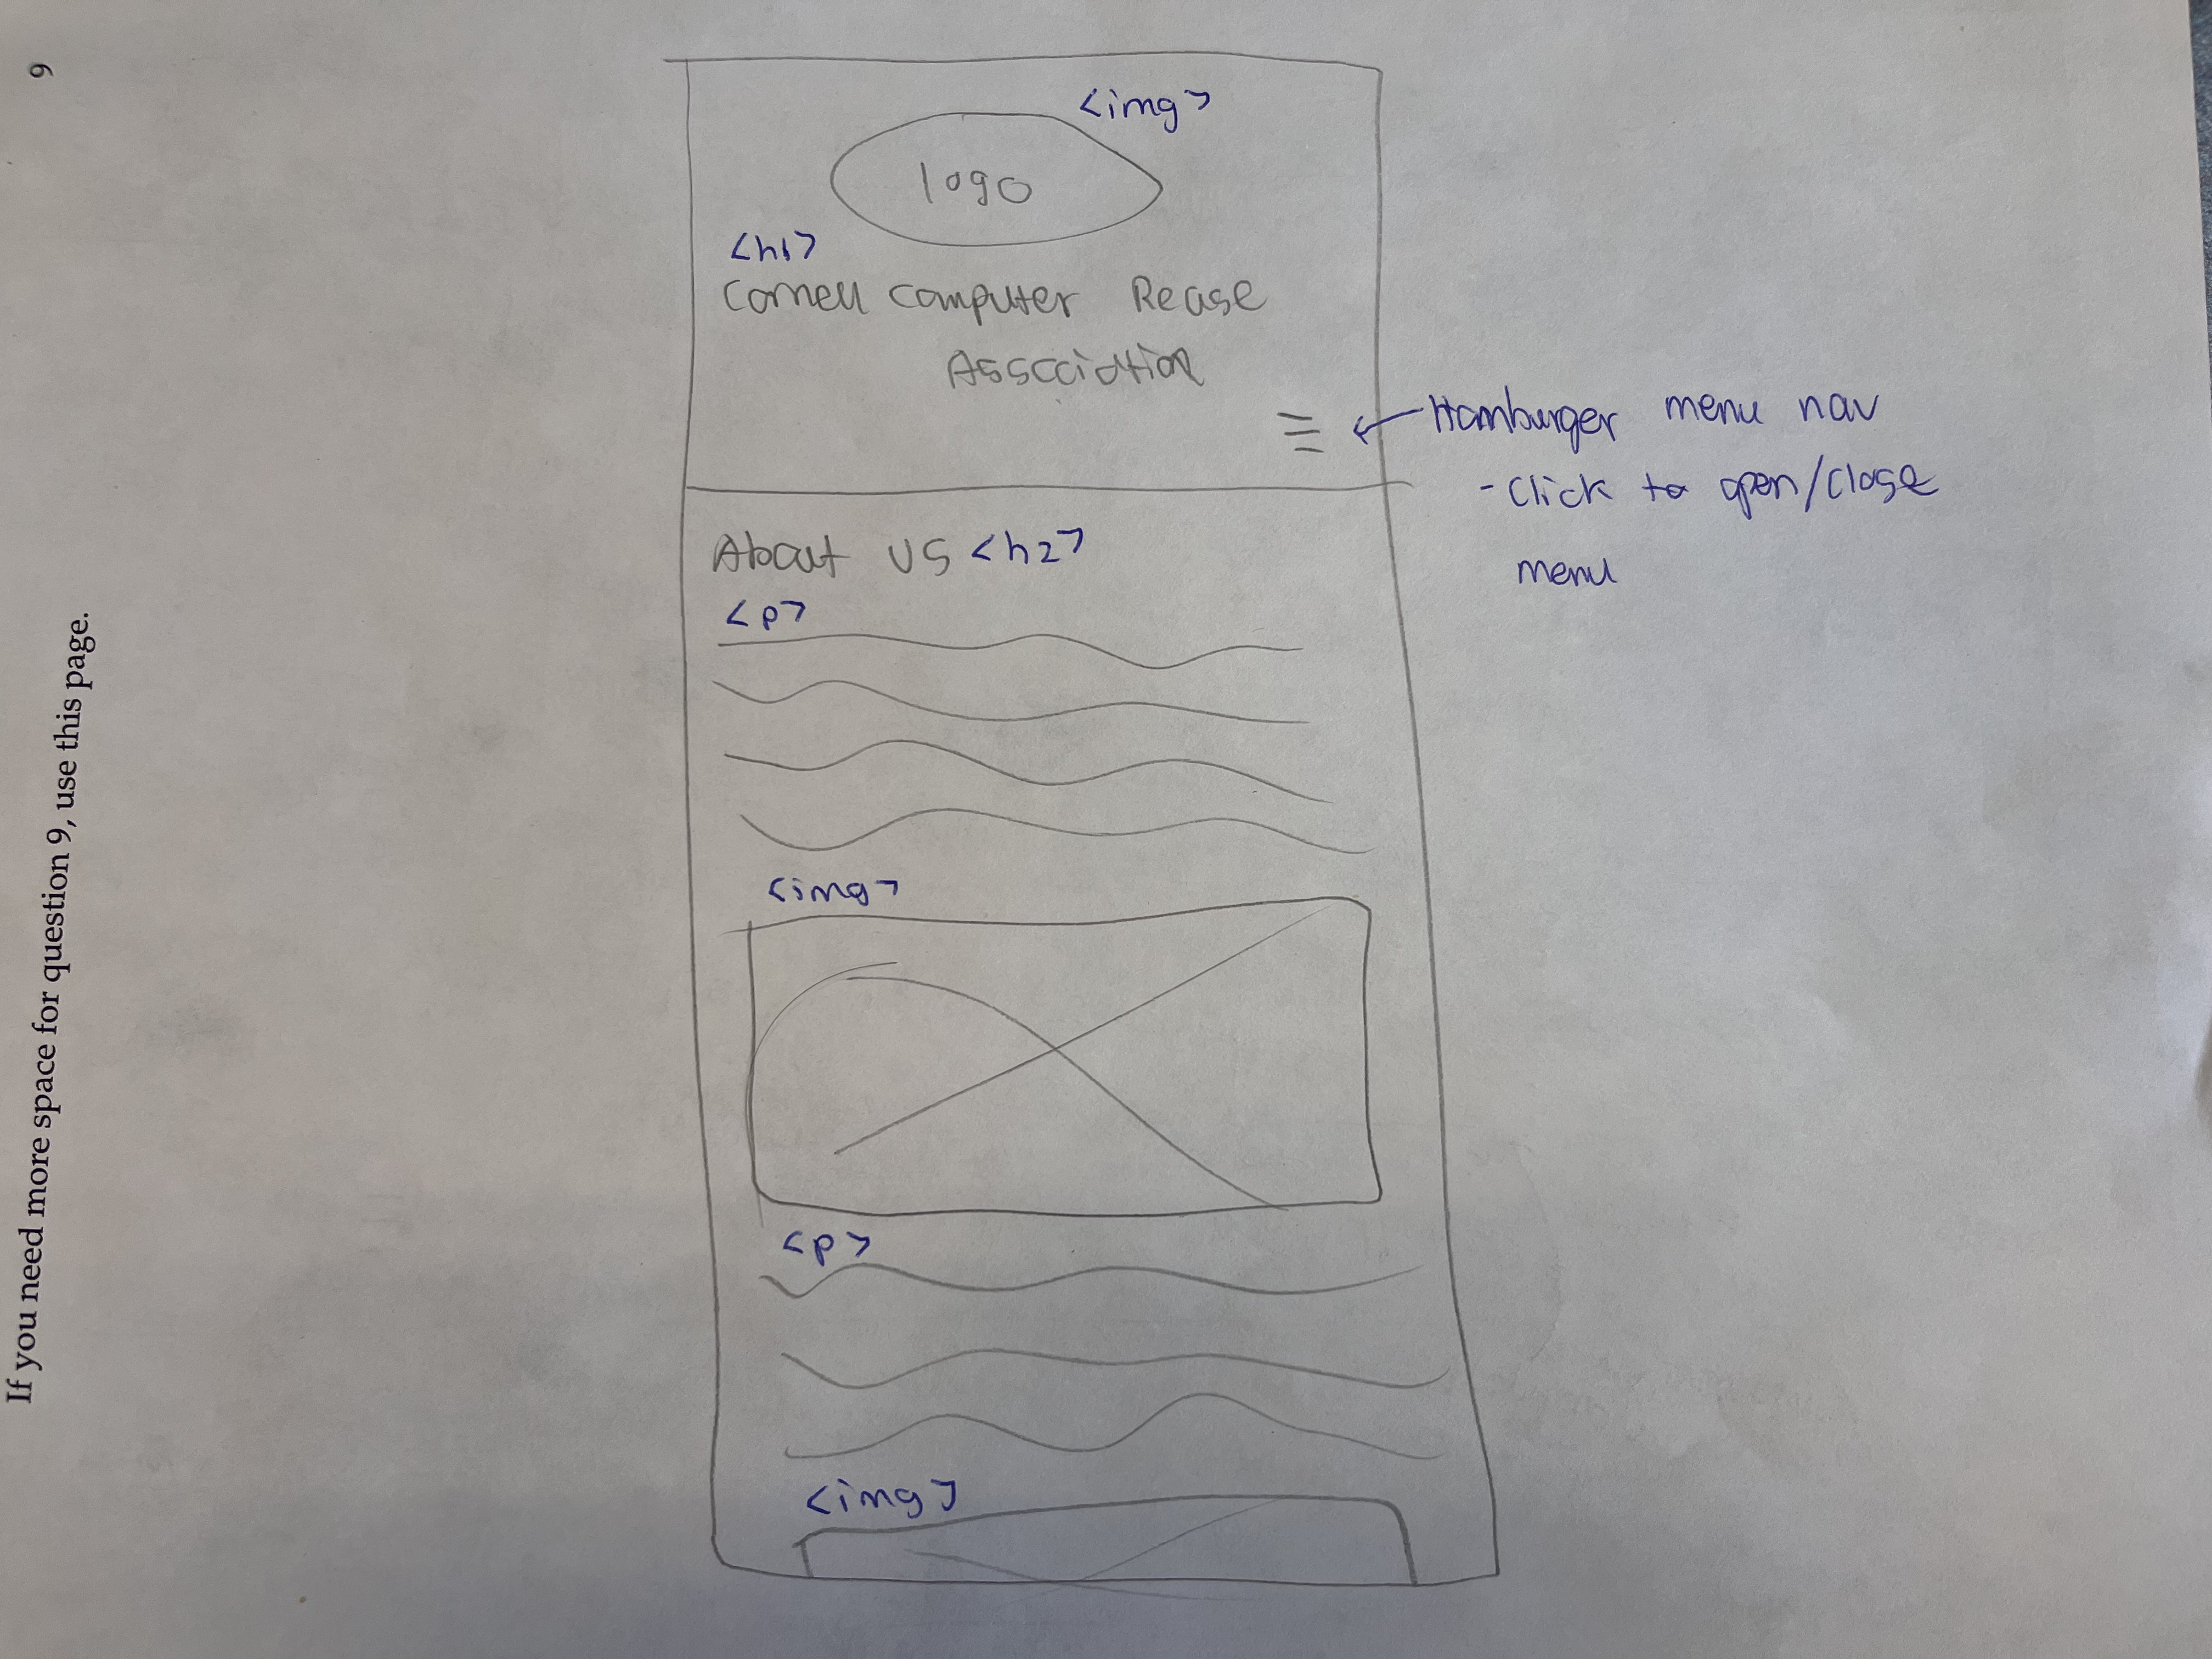 9
If you need more space for question 9, use this page.
<img>
logo
<h1>
Cornell Computer Reuse
Association
Hamburger menu nav
- Click to open/close
menu
About US <h2>
<p>
<img>
<p>
<img>